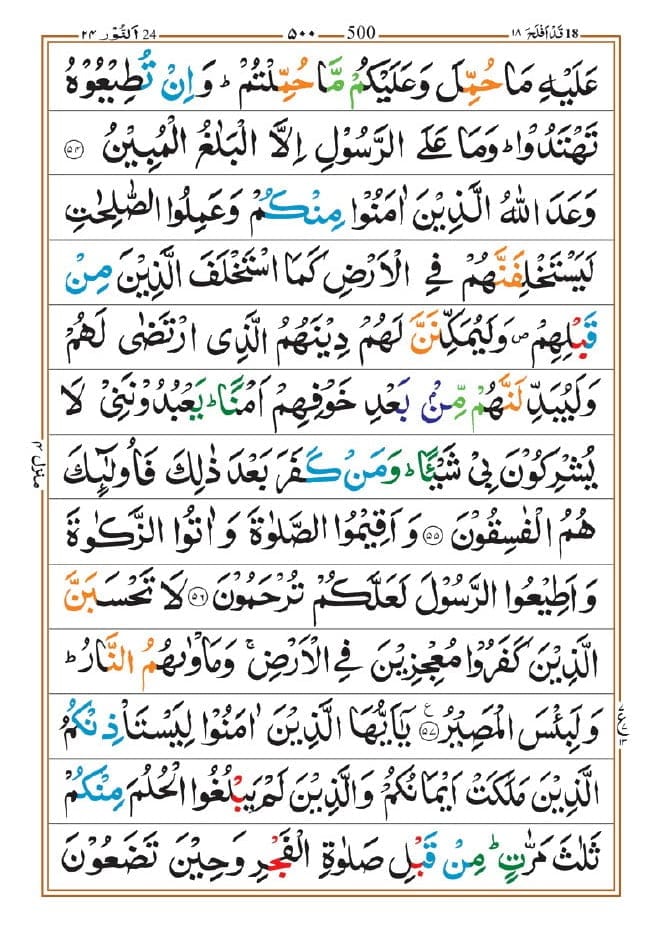 18 قَدْ اَفْلَحَ ۱۸ 500 ۵۰۰ 24 اَلنُّوْر ۲۴
عَلَيْهِ مَا حُمِّلَ وَعَلَيْكُمْ مَّا حُمِّلْتُمْ ؕ وَ اِنْ تُطِيْعُوْهُ
تَهْتَدُوْا ؕ وَمَا عَلَى الرَّسُوْلِ اِلَّا الْبَلٰغُ الْمُبِيْنُ ﴿۵۴﴾
وَعَدَ اللّٰهُ الَّذِيْنَ اٰمَنُوْا مِنْكُمْ وَعَمِلُوا الصّٰلِحٰتِ
لَيَسْتَخْلِفَنَّهُمْ فِي الْاَرْضِ كَمَا اسْتَخْلَفَ الَّذِيْنَ مِنْ
قَبْلِهِمْ ۪ وَلَيُمَكِّنَنَّ لَهُمْ دِيْنَهُمُ الَّذِى ارْتَضٰى لَهُمْ
وَلَيُبَدِّلَنَّهُمْ مِّنْۢ بَعْدِ خَوْفِهِمْ اَمْنًا ؕ يَعْبُدُوْنَنِيْ لَا
يُشْرِكُوْنَ بِيْ شَيْـًٔا ؕ وَمَنْ كَفَرَ بَعْدَ ذٰلِكَ فَاُولٰٓئِكَ
هُمُ الْفٰسِقُوْنَ ﴿۵۵﴾ وَ اَقِيْمُوا الصَّلٰوةَ وَ اٰتُوا الزَّكٰوةَ
وَ اَطِيْعُوا الرَّسُوْلَ لَعَلَّكُمْ تُرْحَمُوْنَ ﴿۵۶﴾ لَا تَحْسَبَنَّ
الَّذِيْنَ كَفَرُوْا مُعْجِزِيْنَ فِي الْاَرْضِ ۚ وَمَاْوٰىهُمُ النَّارُ ؕ
وَ لَبِئْسَ الْمَصِيْرُ ﴿۵۷﴾ ع يٰۤاَيُّهَا الَّذِيْنَ اٰمَنُوْا لِيَسْتَاْذِنْكُمُ
الَّذِيْنَ مَلَكَتْ اَيْمَانُكُمْ وَالَّذِيْنَ لَمْ يَبْلُغُوا الْحُلُمَ مِنْكُمْ
ثَلٰثَ مَرّٰتٍ ؕ مِنْ قَبْلِ صَلٰوةِ الْفَجْرِ وَحِيْنَ تَضَعُوْنَ
منزل ۴